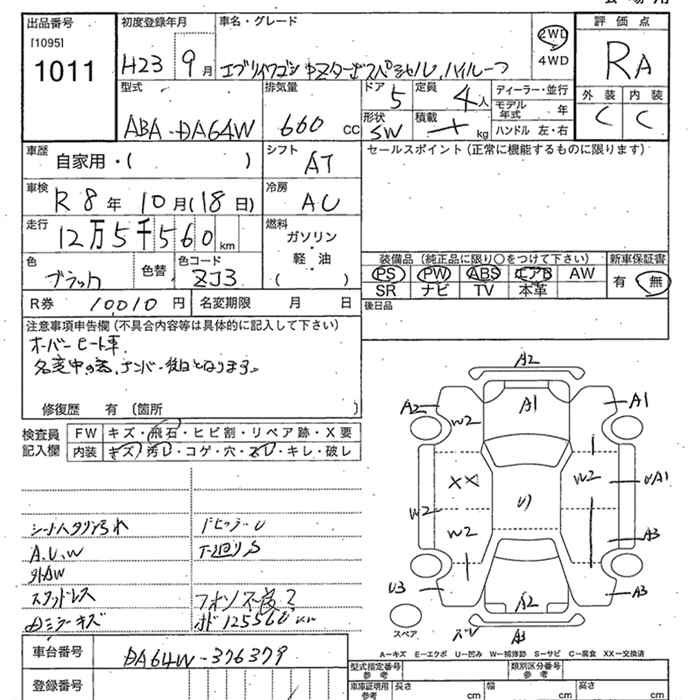 出品番号 初度登録年月 車名・グレード 評価点
[1095]
1011
H23 9月 2WD 4WD RA
型式 排気量 ドア 定員 ディーラー・並行 外装 内装
ABA-DA64W 660 CC 5 4人 モデル年式 年 C C
形状 積載 ハンドル 左・右
SW kg
車歴 シフト セールスポイント(正常に機能するものに限ります)
自家用・( ) AT
車検 冷房
R8年 10月(18日) AC
走行 燃料
12万5千560km ガソリン・軽油
( )
色 色替 色コード
ブラック ZJ3
装備品(純正品に限り○をつけて下さい) 新車保証書
PS PW ABS エアB AW 有 無
SR ナビ TV 本革
R券 10010円 名変期限 月 日 後日品
注意事項申告欄(不具合内容等は具体的に記入して下さい)
オーバーヒート車、
名変中の為、ナンバー後日となります。
修復歴 有 〔箇所 〕
検査員記入欄 FW キズ・飛石・ヒビ割・リペア跡・X要
内装 キズ・汚レ・コゲ・穴・スレ・キレ・破レ
A2
A2 A1 A1
W2
XX W2 A1
W2 W2 A3
U3 A2 A3
A3
スペア
A.U.W
外AW
スタッドレス
ホーン不良?
125560km
A-キズ E-エクボ U-凹み W-補修跡 S-サビ C-腐食 XX-交換済
車台番号 DA64W-376379
登録番号
型式指定番号参考 類別区分番号参考
車庫証明用参考 長さ cm 幅 cm 高さ cm